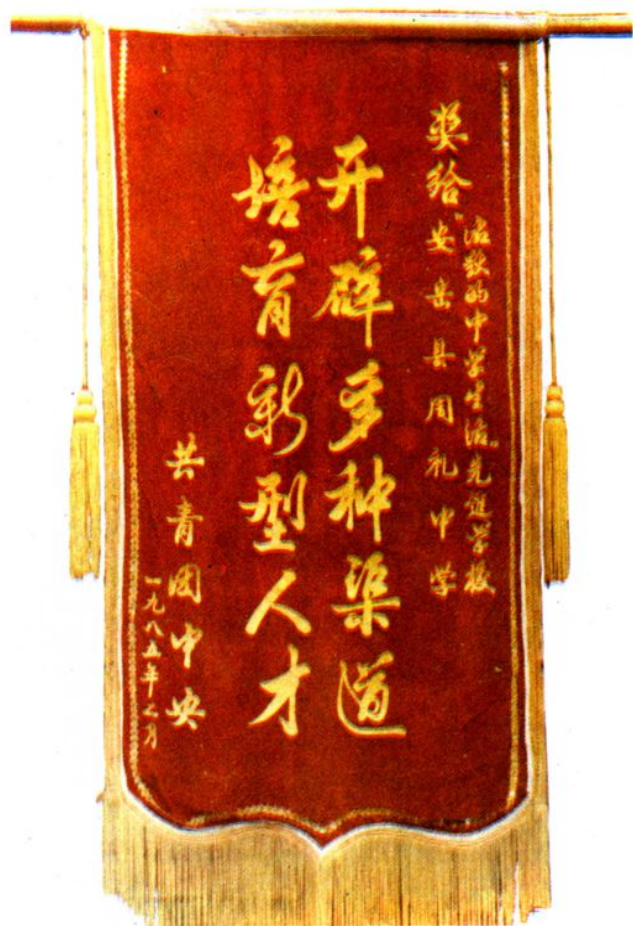 奖给
"活跃的中学生活"先进学校
安岳县周礼中学
开辟多种渠道
培育新型人才
共青团中央
一九八五年七月